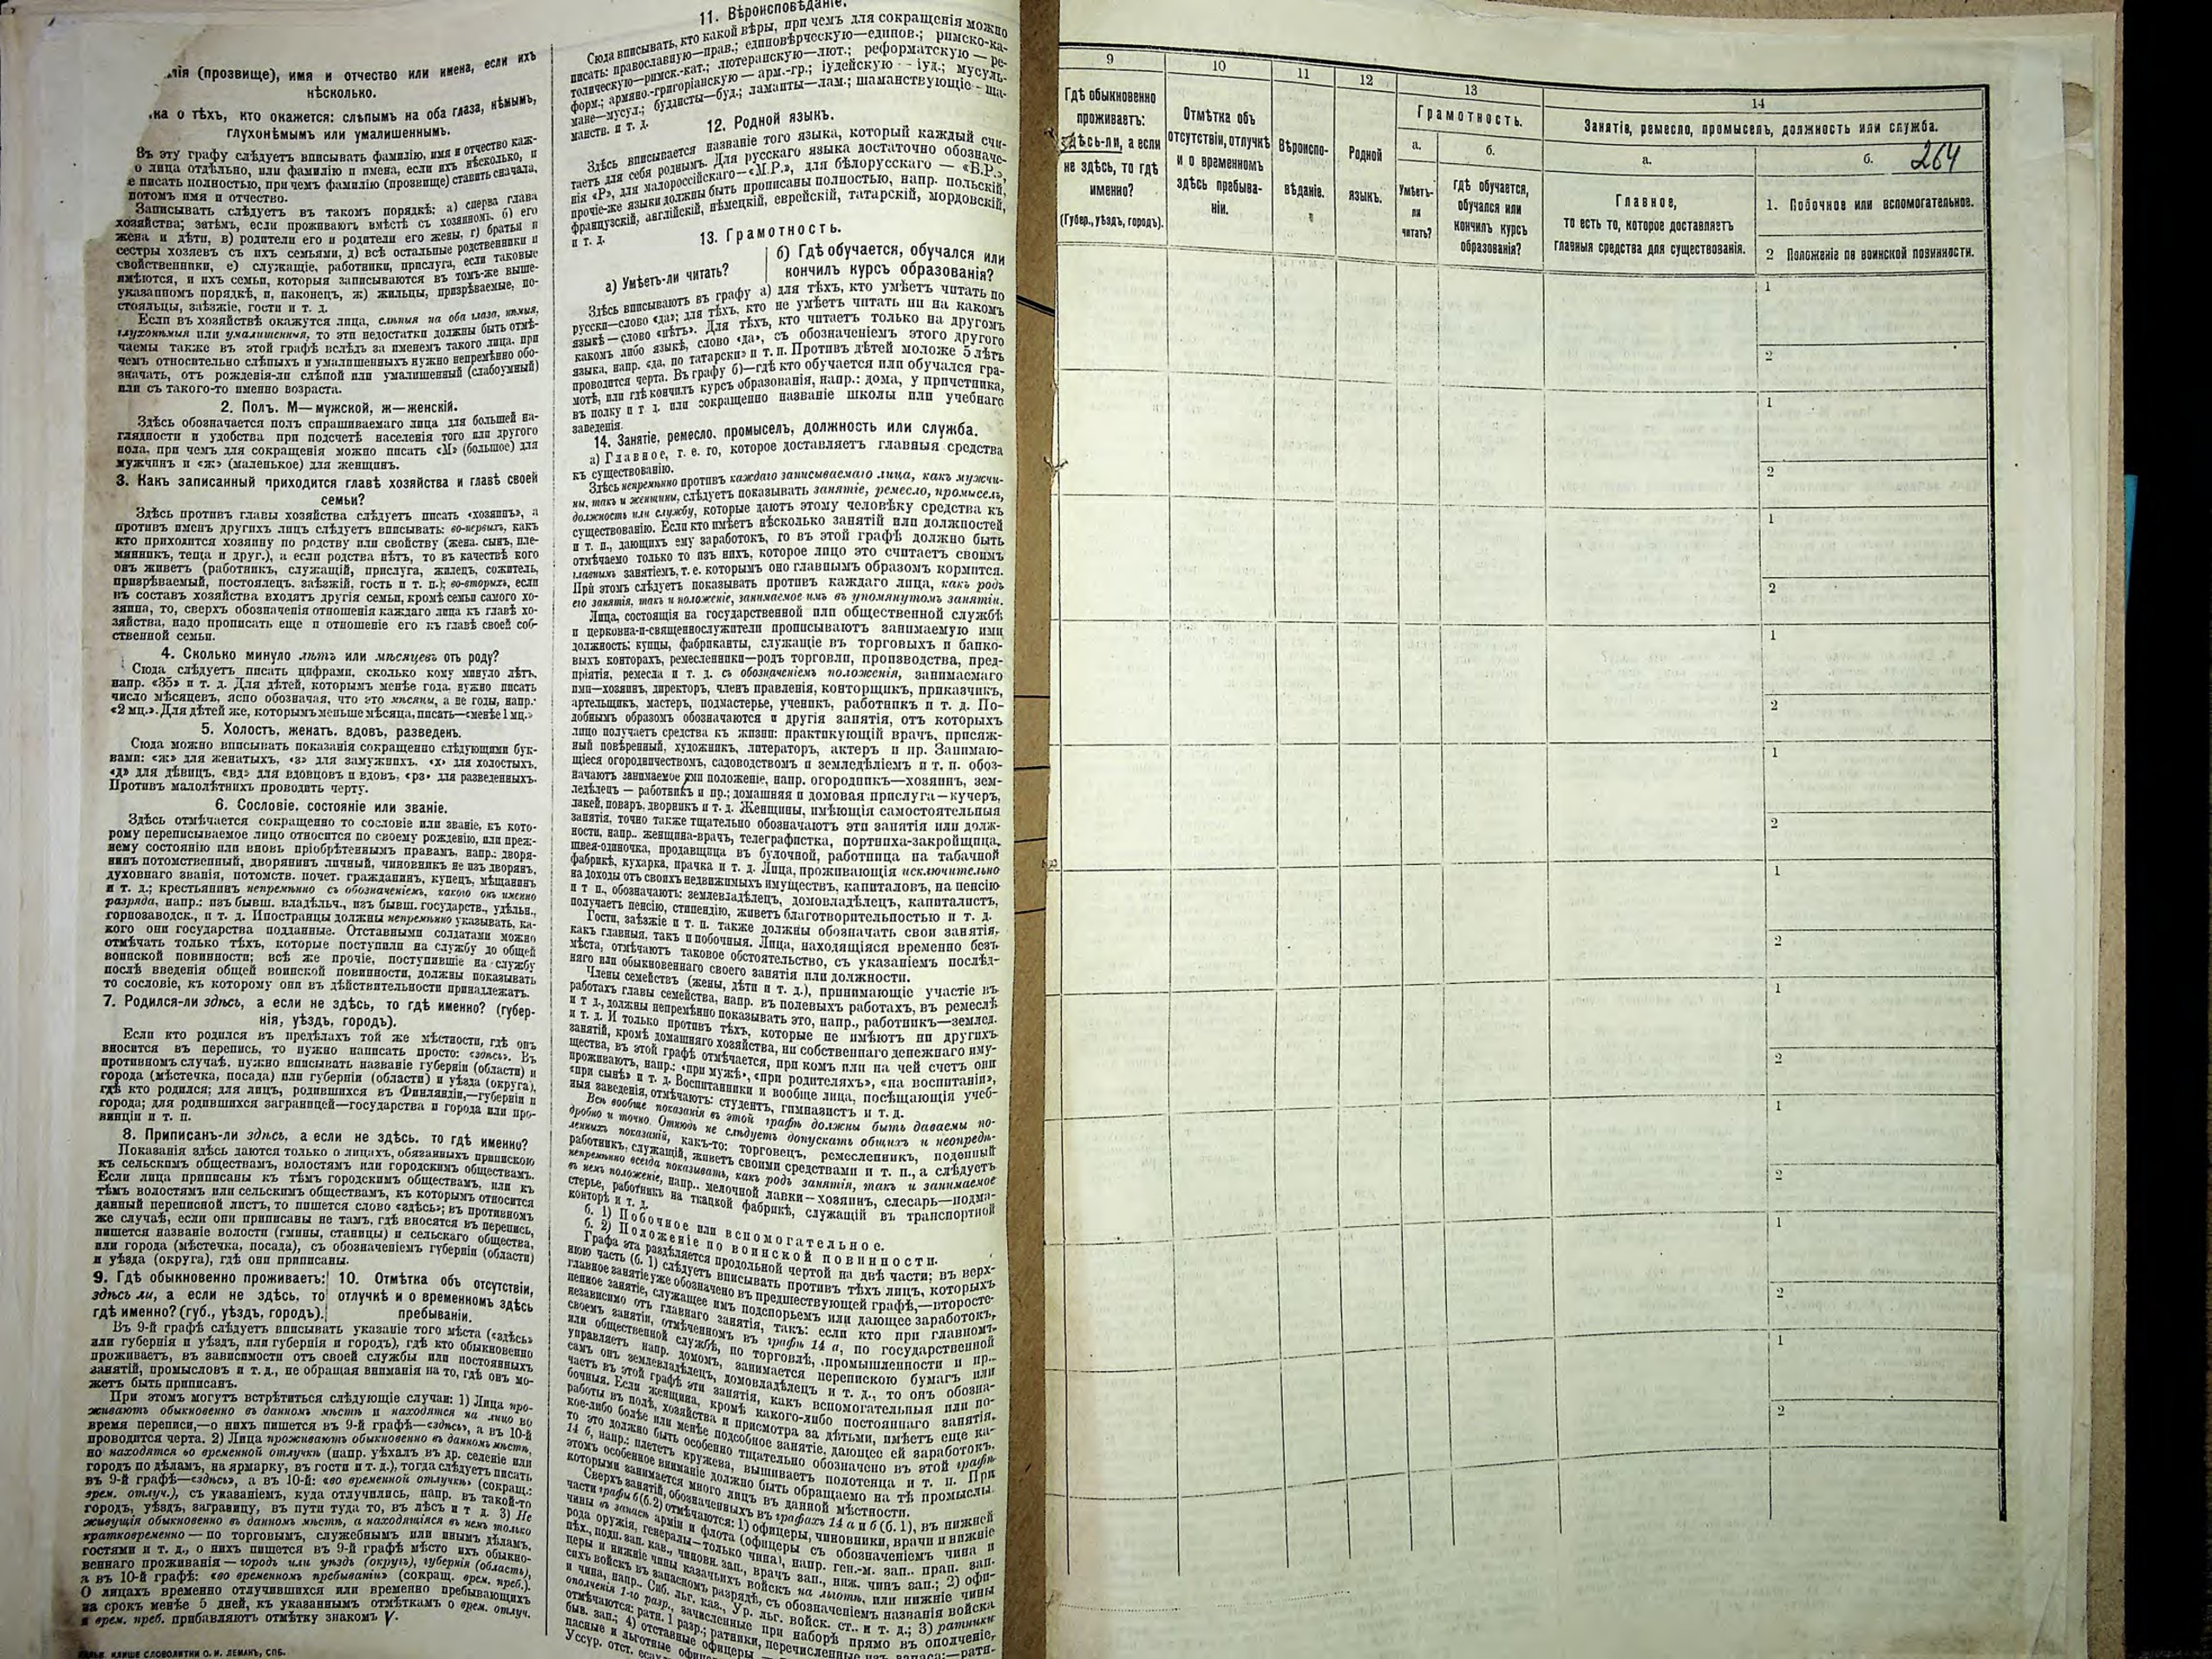 .лія (прозвище), имя и отчество или имена, если ихъ
нѣсколько.
.ка о тѣхъ, кто окажется: слѣпымъ на оба глаза, нѣмымъ,
глухонѣмымъ или умалишеннымъ.
Въ эту графу слѣдуетъ вписывать фамилію, имя и отчество каж-
о лица отдѣльно, или фамилію и имена, если ихъ нѣсколько, и
е писать полностью, при чемъ фамилію (прозвище) ставить сначала,
потомъ имя и отчество.
Записывать слѣдуетъ въ такомъ порядкѣ: а) сперва глава
хозяйства; затѣмъ, если проживаютъ вмѣстѣ съ хозяиномъ. б) его
жена и дѣти, в) родители его и родители его жены, г) братья и
сестры хозяевъ съ ихъ семьями, д) всѣ остальные родственники и
свойственники, е) служащіе, работники, прислуга, если таковые
имѣются, и ихъ семьи, которыя записываются въ томъ-же выше-
указанномъ порядкѣ, и, наконецъ, ж) жильцы, призрѣваемые, по-
стояльцы, заѣзжіе, гости и т. д.
Если въ хозяйствѣ окажутся лица, слѣпыя на оба глаза, нѣмыя,
глухонѣмыя или умалишенныя, то эти недостатки должны быть отмѣ-
чаемы также въ этой графѣ вслѣдъ за именемъ такого лица, при
чемъ относительно слѣпыхъ и умалишенныхъ нужно непремѣнно обо-
значать, отъ рожденія-ли слѣпой или умалишенный (слабоумный)
или съ такого-то именно возраста.
2. Полъ. М—мужской, ж—женскій.
Здѣсь обозначается полъ спрашиваемаго лица для большей на-
глядности и удобства при подсчетѣ населенія того или другого
пола, при чемъ для сокращенія можно писать «М» (большое) для
мужчинъ и «ж» (маленькое) для женщинъ.
3. Какъ записанный приходится главѣ хозяйства и главѣ своей
семьи?
Здѣсь противъ главы хозяйства слѣдуетъ писать «хозяинъ», а
противъ именъ другихъ лицъ слѣдуетъ вписывать: во-первыхъ, какъ
кто приходится хозяину по родству или свойству (жена, сынъ, пле-
мянникъ, теща и друг.), а если родства нѣтъ, то въ качествѣ кого
онъ живетъ (работникъ, служащій, прислуга, жилецъ, сожитель,
призрѣваемый, постоялецъ, заѣзжій, гость и т. п.); во-вторыхъ, если
въ составъ хозяйства входятъ другія семьи, кромѣ семьи самого хо-
зяина, то, сверхъ обозначенія отношенія каждаго лица къ главѣ хо-
зяйства, надо прописать еще и отношеніе его къ главѣ своей соб-
ственной семьи.
4. Сколько минуло лѣтъ или мѣсяцевъ отъ роду?
Сюда слѣдуетъ писать цифрами, сколько кому минуло лѣтъ,
напр. «35» и т. д. Для дѣтей, которымъ менѣе года, нужно писать
число мѣсяцевъ, ясно обозначая, что это мѣсяцы, а не годы, напр.
«2 мц.». Для дѣтей же, которымъ меньше мѣсяца, писать—«менѣе 1 мц.»
5. Холостъ, женатъ, вдовъ, разведенъ.
Сюда можно вписывать показанія сокращенно слѣдующими бук-
вами: «ж» для женатыхъ, «з» для замужнихъ, «х» для холостыхъ,
«д» для дѣвицъ, «вд» для вдовцовъ и вдовъ, «рз» для разведенныхъ.
Противъ малолѣтнихъ проводить черту.
6. Сословіе, состояніе или званіе.
Здѣсь отмѣчается сокращенно то сословіе или званіе, къ кото-
рому переписываемое лицо относится по своему рожденію, или преж-
нему состоянію или вновь пріобрѣтеннымъ правамъ, напр.: дворя-
нинъ потомственный, дворянинъ личный, чиновникъ не изъ дворянъ,
духовнаго званія, потомств. почет. гражданинъ, купецъ, мѣщанинъ
и т. д.; крестьянинъ непремѣнно съ обозначеніемъ, какого онъ именно
разряда, напр.: изъ бывш. владѣльч., изъ бывш. государств., удѣльн.,
горнозаводск., и т. д. Иностранцы должны непремѣнно указывать, ка-
кого они государства подданные. Отставными солдатами можно
отмѣчать только тѣхъ, которые поступили на службу до общей
воинской повинности; всѣ же прочіе, поступившіе на службу
послѣ введенія общей воинской повинности, должны показывать
то сословіе, къ которому они въ дѣйствительности принадлежатъ.
7. Родился-ли здѣсь, а если не здѣсь, то гдѣ именно? (губер-
нія, уѣздъ, городъ).
Если кто родился въ предѣлахъ той же мѣстности, гдѣ онъ
вносится въ перепись, то нужно написать просто: «здѣсь». Въ
противномъ случаѣ, нужно вписывать названіе губерніи (области) и
города (мѣстечка, посада) или губерніи (области) и уѣзда (округа),
гдѣ кто родился; для лицъ, родившихся въ Финляндіи,—губерніи и
города; для родившихся заграницей—государства и города или про-
винціи и т. п.
8. Приписанъ-ли здѣсь, а если не здѣсь, то гдѣ именно?
Показанія здѣсь даются только о лицахъ, обязанныхъ припискою
къ сельскимъ обществамъ, волостямъ или городскимъ обществамъ.
Если лица приписаны къ тѣмъ городскимъ обществамъ, или къ
тѣмъ волостямъ или сельскимъ обществамъ, къ которымъ относится
данный переписной листъ, то пишется слово «здѣсь»; въ противномъ
же случаѣ, если они приписаны не тамъ, гдѣ вносятся въ перепись,
пишется названіе волости (гмины, станицы) и сельскаго общества,
или города (мѣстечка, посада), съ обозначеніемъ губерніи (области)
и уѣзда (округа), гдѣ они приписаны.
9. Гдѣ обыкновенно проживаетъ:
здѣсь ли, а если не здѣсь, то
гдѣ именно? (губ., уѣздъ, городъ).
10. Отмѣтка объ отсутствіи,
отлучкѣ и о временномъ здѣсь
пребываніи.
Въ 9-й графѣ слѣдуетъ вписывать указаніе того мѣста («здѣсь»
или губернія и уѣздъ, или губернія и городъ), гдѣ кто обыкновенно
проживаетъ, въ зависимости отъ своей службы или постоянныхъ
занятій, промысловъ и т. д., не обращая вниманія на то, гдѣ онъ мо-
жетъ быть приписанъ.
При этомъ могутъ встрѣтиться слѣдующіе случаи: 1) Лица про-
живаютъ обыкновенно въ данномъ мѣстѣ и находятся на лицо во
время переписи,—о нихъ пишется въ 9-й графѣ—«здѣсь», а въ 10-й
проводится черта. 2) Лица проживаютъ обыкновенно въ данномъ мѣстѣ,
но находятся во временной отлучкѣ (напр. уѣхалъ въ др. селеніе или
городъ по дѣламъ, на ярмарку, въ гости и т. д.), тогда слѣдуетъ писать
въ 9-й графѣ—«здѣсь», а въ 10-й: «во временной отлучкѣ» (сокращ.:
врем. отлуч.), съ указаніемъ, куда отлучились, напр. въ такой-то
городъ, уѣздъ, заграницу, въ пути туда то, въ лѣсъ и т д. 3) Не
живущія обыкновенно въ данномъ мѣстѣ, а находящіяся въ немъ только
кратковременно—по торговымъ, служебнымъ или инымъ дѣламъ,
гостями и т. д., о нихъ пишется въ 9-й графѣ мѣсто ихъ обыкно-
веннаго проживанія—городъ или уѣздъ (округъ), губернія (область),
а въ 10-й графѣ: «во временномъ пребываніи» (сокращ. врем. преб.).
О лицахъ временно отлучившихся или временно пребывающихъ
на срокъ менѣе 5 дней, къ указаннымъ отмѣткамъ о врем. отлуч.
и врем. преб. прибавляютъ отмѣтку знакомъ V.
КЛИШЕ СЛОВОЛИТНИ О. И. ЛЕМАНЪ, СПБ.
11. Вѣроисповѣданіе.
Сюда вписывать, кто какой вѣры, при чемъ для сокращенія можно
писать: православную—прав.; единовѣрческую—единов.; римско-ка-
толическую—римск.-кат.; лютеранскую—лют.; реформатскую—ре-
форм.; армяно.-григоріанскую—арм.-гр.; іудейскую—іуд.; мусуль-
мане—мусул.; буддисты—буд.; ламаиты—лам.; шаманствующіе—ша-
манств. и т. д.
12. Родной языкъ.
Здѣсь вписывается названіе того языка, который каждый счи-
таетъ для себя роднымъ. Для русскаго языка достаточно обозначе-
нія «Р», для малороссійскаго—«М.Р.», для бѣлорусскаго—«Б.Р.»,
прочіе-же языки должны быть прописаны полностью, напр. польскій,
французскій, англійскій, нѣмецкій, еврейскій, татарскій, мордовскій,
и т. д.
13. Грамотность.
а) Умѣетъ-ли читать?
б) Гдѣ обучается, обучался или
кончилъ курсъ образованія?
Здѣсь вписываютъ въ графу а) для тѣхъ, кто умѣетъ читать по
русски—слово «да»; для тѣхъ, кто не умѣетъ читать ни на какомъ
языкѣ—слово «нѣтъ». Для тѣхъ, кто читаетъ только на другомъ
какомъ либо языкѣ, слово «да», съ обозначеніемъ этого другого
языка, напр. «да, по татарски» и т. п. Противъ дѣтей моложе 5 лѣтъ
проводится черта. Въ графу б)—гдѣ кто обучается или обучался гра-
мотѣ, или гдѣ кончилъ курсъ образованія, напр.: дома, у причетника,
въ полку и т д. или сокращенно названіе школы или учебнаго
заведенія.
14. Занятіе, ремесло, промыселъ, должность или служба.
а) Главное, т. е. то, которое доставляетъ главныя средства
къ существованію.
Здѣсь непремѣнно противъ каждаго записываемаго лица, какъ мужчи-
ны, такъ и женщины, слѣдуетъ показывать занятіе, ремесло, промыселъ,
должность или службу, которые даютъ этому человѣку средства къ
существованію. Если кто имѣетъ нѣсколько занятій или должностей
и т. п., дающихъ ему заработокъ, то въ этой графѣ должно быть
отмѣчаемо только то изъ нихъ, которое лицо это считаетъ своимъ
главнымъ занятіемъ, т. е. которымъ оно главнымъ образомъ кормится.
При этомъ слѣдуетъ показывать противъ каждаго лица, какъ родъ
его занятія, такъ и положеніе, занимаемое имъ въ упомянутомъ занятіи.
Лица, состоящія на государственной или общественной службѣ
и церковна-и-священнослужители прописываютъ занимаемую ими
должность; купцы, фабриканты, служащіе въ торговыхъ и банко-
выхъ конторахъ, ремесленники—родъ торговли, производства, пред-
пріятія, ремесла и т. д. съ обозначеніемъ положенія, занимаемаго
ими—хозяинъ, директоръ, членъ правленія, конторщикъ, приказчикъ,
артельщикъ, мастеръ, подмастерье, ученикъ, работникъ и т. д. По-
добнымъ образомъ обозначаются и другія занятія, отъ которыхъ
лицо получаетъ средства къ жизни: практикующій врачъ, присяж-
ный повѣренный, художникъ, литераторъ, актеръ и пр. Занимаю-
щіеся огородничествомъ, садоводствомъ и земледѣліемъ и т. п. обоз-
начаютъ занимаемое ими положеніе, напр. огородникъ—хозяинъ, зем-
ледѣлецъ—работникъ и пр.; домашняя и домовая прислуга—кучеръ,
лакей, поваръ, дворникъ и т. д. Женщины, имѣющія самостоятельныя
занятія, точно также тщательно обозначаютъ эти занятія или долж-
ности, напр.. женщина-врачъ, телеграфистка, портниха-закройщица,
швея-одиночка, продавщица въ булочной, работница на табачной
фабрикѣ, кухарка, прачка и т. д. Лица, проживающія исключительно
на доходы отъ своихъ недвижимыхъ имуществъ, капиталовъ, на пенсію
и т п., обозначаютъ: землевладѣлецъ, домовладѣлецъ, капиталистъ,
получаетъ пенсію, стипендію, живетъ благотворительностью и т. д.
Гости, заѣзжіе и т. п. также должны обозначать свои занятія,
какъ главныя, такъ и побочныя. Лица, находящіяся временно безъ
мѣста, отмѣчаютъ таковое обстоятельство, съ указаніемъ послѣд-
няго или обыкновеннаго своего занятія или должности.
Члены семействъ (жены, дѣти и т. д.), принимающіе участіе въ
работахъ главы семейства, напр. въ полевыхъ работахъ, въ ремеслѣ
и т д., должны непремѣнно показывать это, напр., работникъ—землед.
и т. д. И только противъ тѣхъ, которые не имѣютъ ни другихъ
занятій, кромѣ домашняго хозяйства, ни собственнаго денежнаго иму-
щества, въ этой графѣ отмѣчается, при комъ или на чей счетъ они
проживаютъ, напр.: «при мужѣ», «при родителяхъ», «на воспитаніи»,
«при сынѣ» и т. д. Воспитанники и вообще лица, посѣщающія учеб-
ныя заведенія, отмѣчаютъ: студентъ, гимназистъ и т. д.
Всѣ вообще показанія въ этой графѣ должны быть даваемы по-
дробно и точно. Отнюдь не слѣдуетъ допускать общихъ и неопредѣ-
ленныхъ показаній, какъ-то: торговецъ, ремесленникъ, поденный
работникъ, служащій, живетъ своими средствами и т. п., а слѣдуетъ
непремѣнно всегда показывать, какъ родъ занятія, такъ и занимаемое
въ немъ положеніе, напр.. мелочной лавки—хозяинъ, слесарь—подма-
стерье, работникъ на ткацкой фабрикѣ, служащій въ транспортной
конторѣ и т. д.
б. 1) Побочное или вспомогательное.
б. 2) Положеніе по воинской повинности.
Графа эта раздѣляется продольной чертой на двѣ части; въ верх-
нюю часть (б. 1) слѣдуетъ вписывать противъ тѣхъ лицъ, которыхъ
главное занятіе уже обозначено въ предшествующей графѣ,—второсте-
пенное занятіе, служащее имъ подспорьемъ или дающее заработокъ,
независимо отъ главнаго занятія, такъ: если кто при главномъ
своемъ занятіи, отмѣченномъ въ графѣ 14 а, по государственной
или общественной службѣ, по торговлѣ, промышленности и пр.
управляетъ напр. домомъ, занимается перепискою бумагъ или
самъ онъ землевладѣлецъ, домовладѣлецъ и т. д., то онъ обозна-
чаетъ въ этой графѣ эти занятія, какъ вспомогательныя или по-
бочныя. Если женщина, кромѣ какого-либо постояннаго занятія,
работы въ полѣ, хозяйства и присмотра за дѣтьми, имѣетъ еще ка-
кое-либо болѣе или менѣе подсобное занятіе, дающее ей заработокъ,
то это должно быть особенно тщательно обозначено въ этой графѣ
14 б, напр.: плететъ кружева, вышиваетъ полотенца и т. п. При
этомъ особенное вниманіе должно быть обращаемо на тѣ промыслы,
которыми занимается много лицъ въ данной мѣстности.
Сверхъ занятій, обозначенныхъ въ графахъ 14 а и б (б. 1), въ нижней
части графы б (б.2) отмѣчаются: 1) офицеры, чиновники, врачи и нижніе
чины въ запасѣ арміи и флота (офицеры съ обозначеніемъ чина и
рода оружія, генералы—только чина), напр. ген.-м. зап.. прап. зап.
пѣх., подп. зап. кав., чиновн. зап., врачъ зап., ниж. чинъ зап.; 2) офи-
церы и нижніе чины казачьихъ войскъ на льготѣ, или нижніе чины
сихъ войскъ въ запасномъ разрядѣ, съ обозначеніемъ названія войска
и чина, напр.. Сиб. льг. каз., Ур. льг. войск. ст.. и т. д.; 3) ратники
ополченія 1-го разр., зачисленные при наборѣ прямо въ ополченіе,
отмѣчаются: ратн. 1 разр.; ратники, перечисленные изъ запаса:—ратн.
быв. зап.; 4) отставные офицеры
пасные и льготные офиц
Уссур. отст. есау
9
10
11
12
13
14
Гдѣ обыкновенно
проживаетъ:
здѣсь-ли, а если
не здѣсь, то гдѣ
именно?
(Губер., уѣздъ, городъ).
Отмѣтка объ
отсутствіи, отлучкѣ
и о временномъ
здѣсь пребыва-
ніи.
Вѣроиспо-
вѣданіе.
Родной
языкъ.
Грамотность.
а.
б.
Умѣетъ-
ли
читать?
гдѣ обучается,
обучался или
кончилъ курсъ
образованія?
Занятіе, ремесло, промыселъ, должность или служба.
а.
б.
264
Главное,
то есть то, которое доставляетъ
главныя средства для существованія.
1. Побочное или вспомогательное.
2 Положеніе по воинской повинности.
1
2
1
2
1
2
1
2
1
2
1
2
1
2
1
2
1
2
1
2